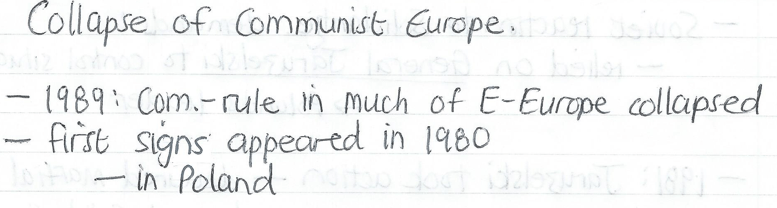 Collapse of Communist Europe.
- 1989: Com.-rule in much of E-Europe collapsed
- first signs appeared in 1980
- in Poland